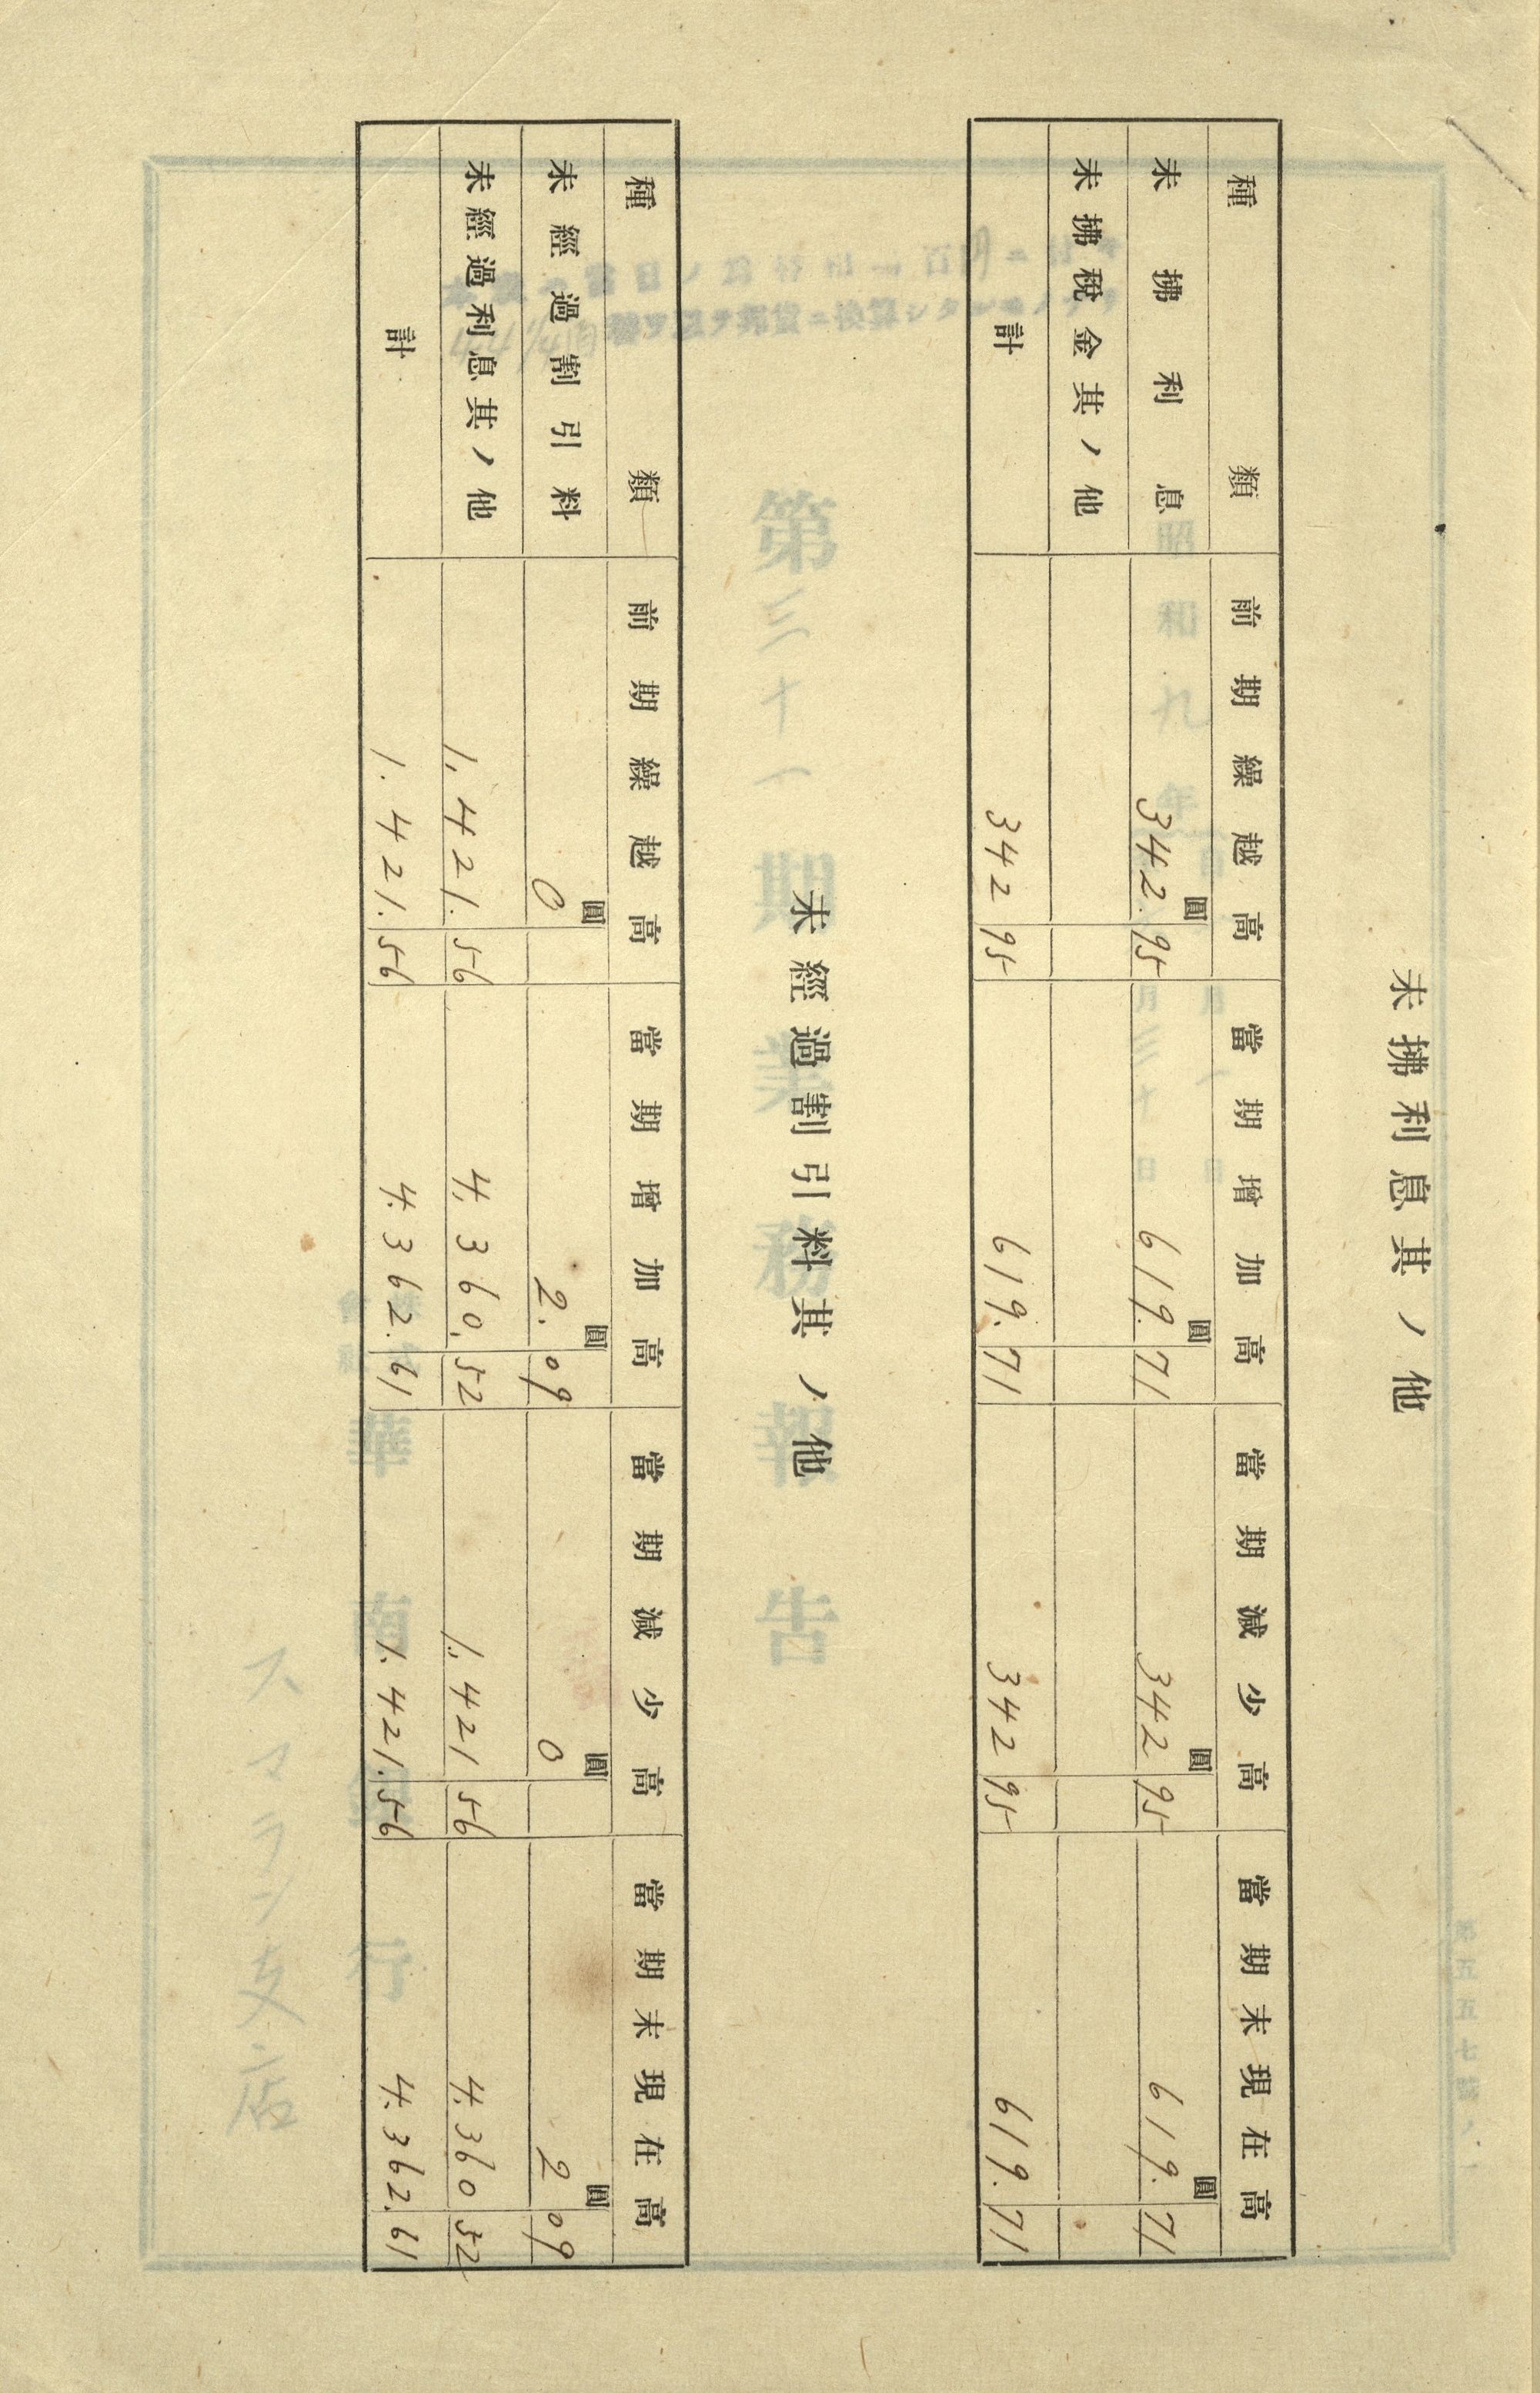 未拂利息其ノ他
種類 前期繰越高 當期增加高 當期減少高 當期末現在高
未拂利息 圓 342.95 圓 619.71 圓 342 95 圓 619.71
未拂税金其ノ他
計 342 95 619.71 342 95 619.71
未經過割引料其ノ他
種類 前期繰越高 當期增加高 當期減少高 當期末現在高
未經過割引料 圓 0 圓 2.09 圓 0 圓 2 09
未經過利息其ノ他 1,421.56 4,360.52 1,421 56 4.360 52
計 1.421.56 4.362.61 1.421.56 4.362.61
第三十一期業務報告
昭和九年
月一日
月三十日
華南銀行
スマラン支店